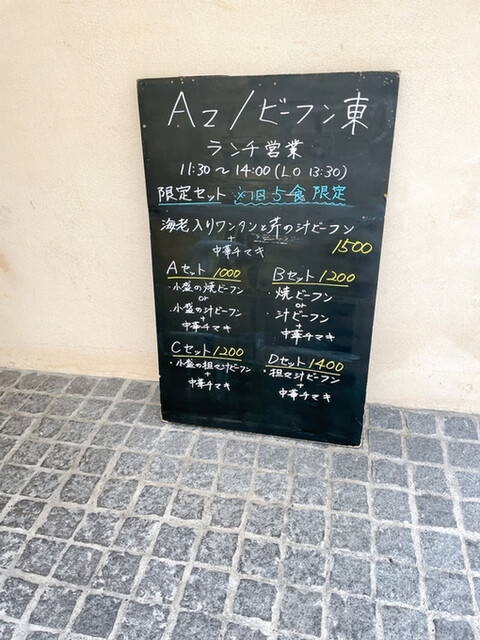 Az/ビーフン東
ランチ営業
11:30～14:00(LO 13:30)
限定セット ※1日5食限定
海老入りワンタンと芹の汁ビーフン
+
中華チマキ 1500
Aセット 1000
・小盛の焼ビーフン
or
・小盛の汁ビーフン
+
中華チマキ
Bセット 1200
・焼ビーフン
or
・汁ビーフン
+
中華チマキ
Cセット 1200
・小盛の担々汁ビーフン
+
中華チマキ
Dセット 1400
・担々汁ビーフン
+
中華チマキ